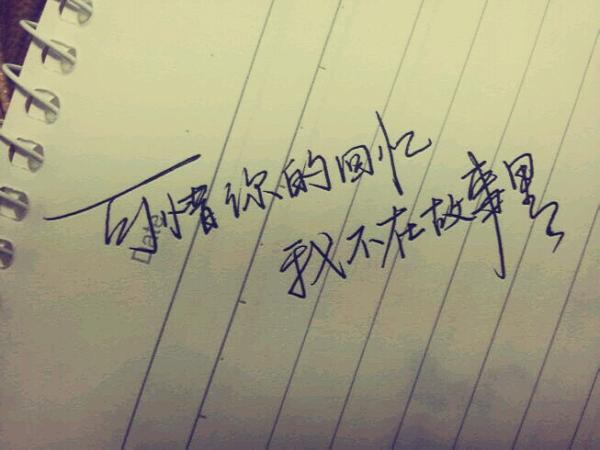 可惜你的回忆
我不在故事里
Date